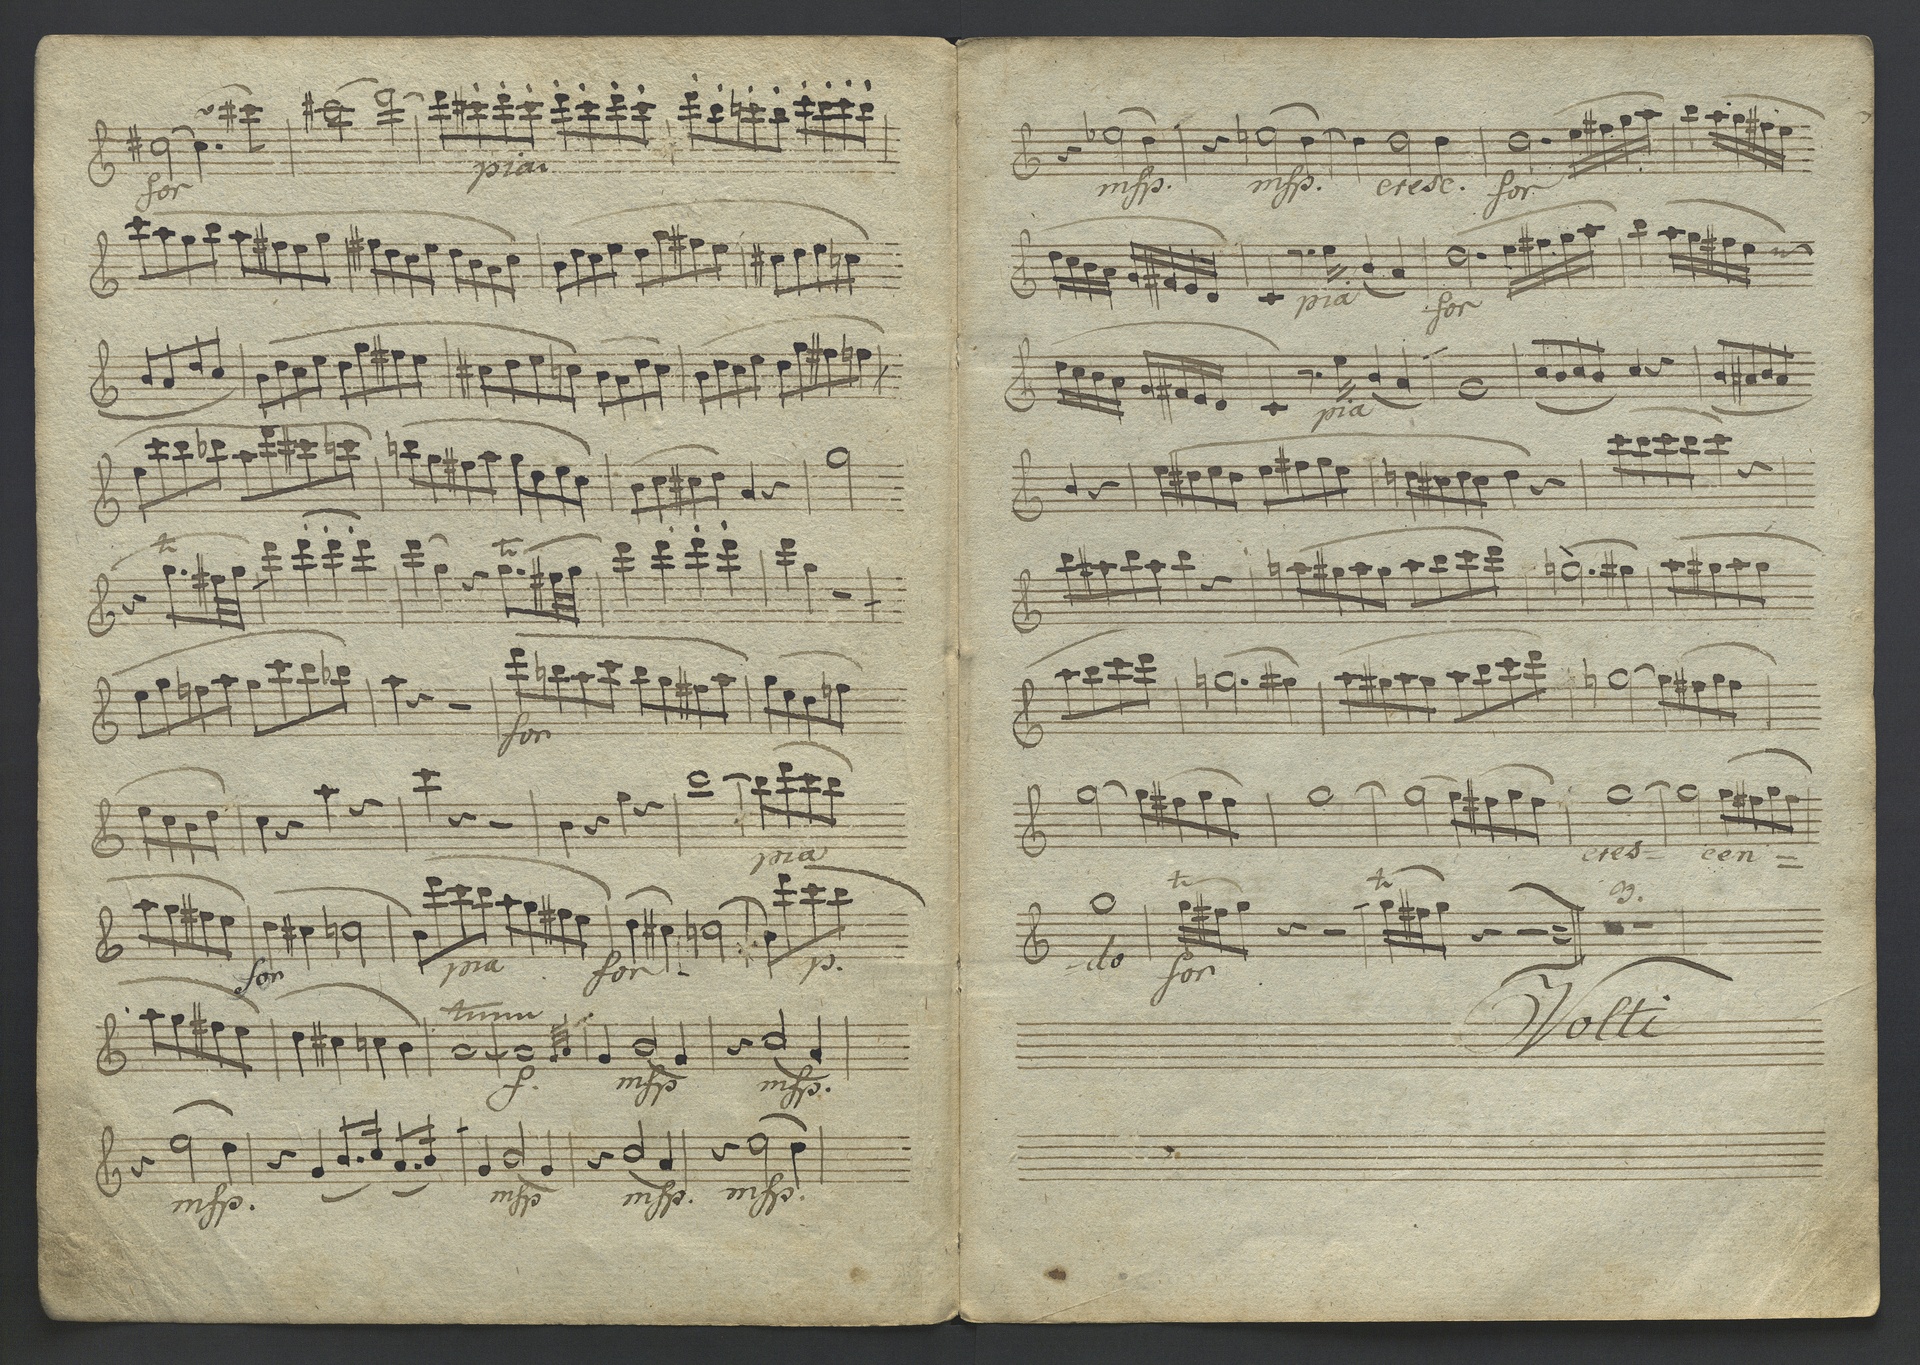 for pia
for
pia
for pia for p.
f. mfp mfp.
mfp. mfp mfp. mfp.
mfp. mfp. cresc. for
pia for
pia
cres= cen =
=do tr for tr 3.
Volti